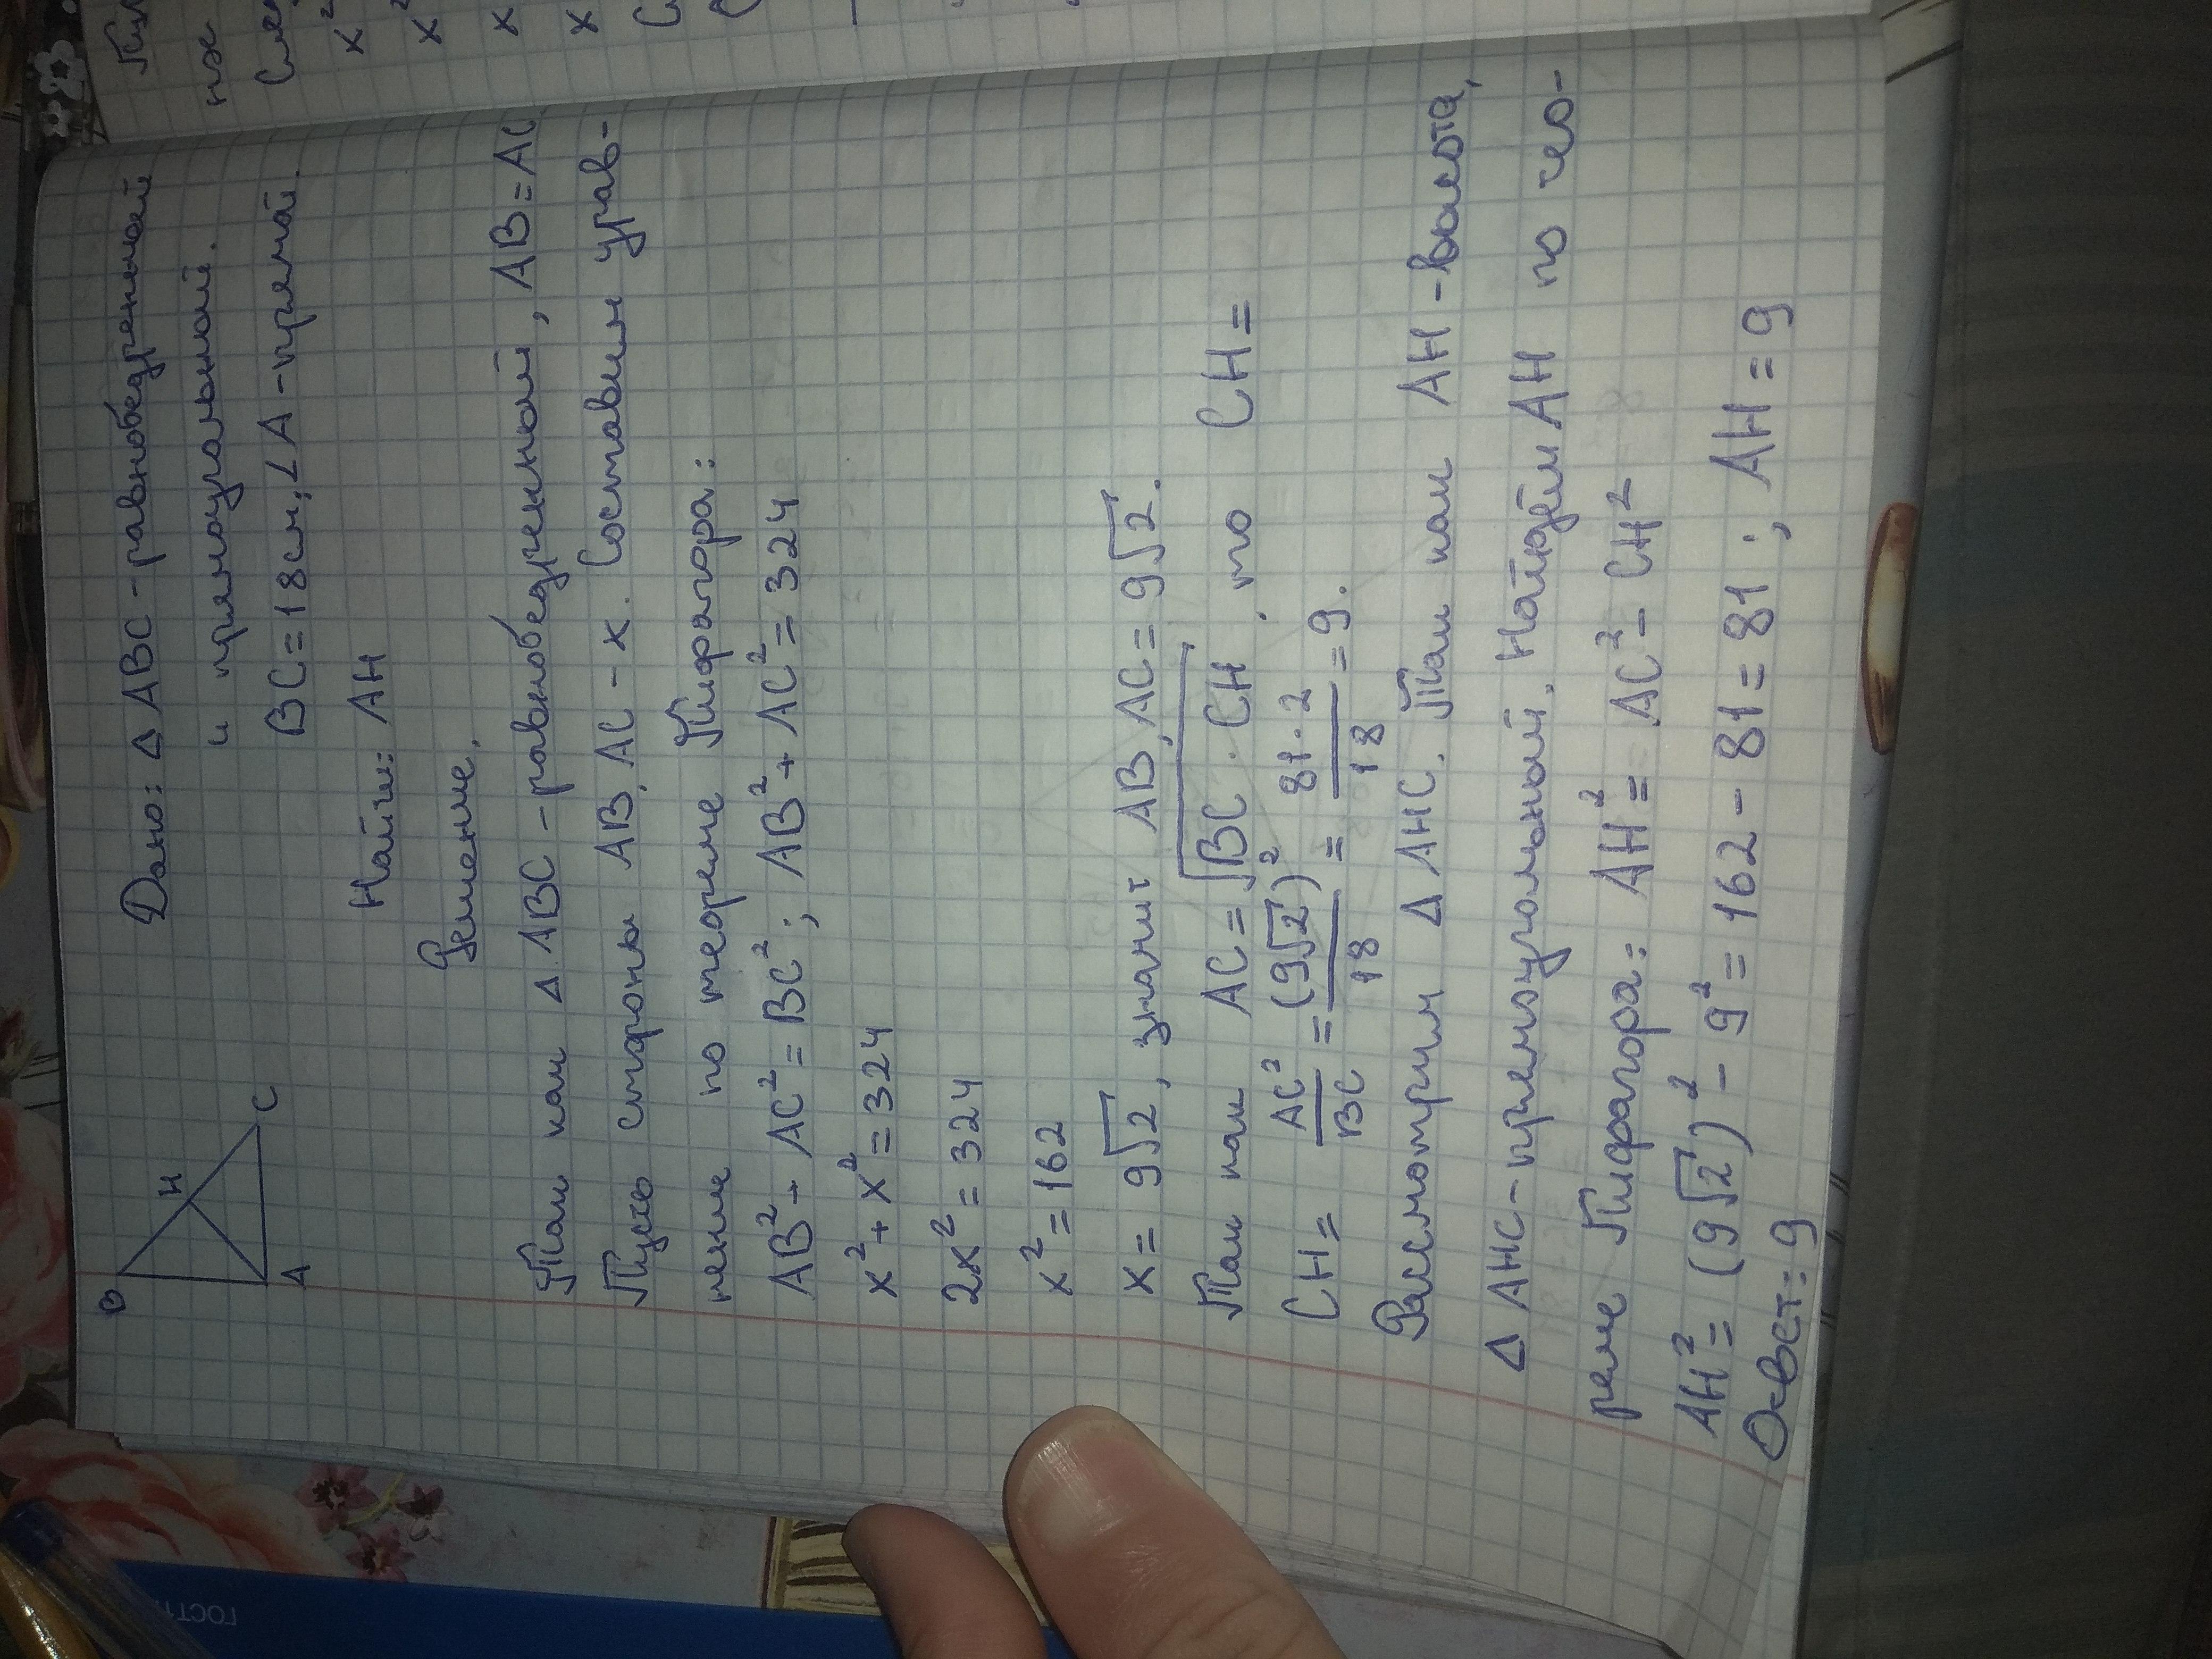 B
H
A
C
Дано: Δ ABC - равнобедренный
и прямоугольный.
BC = 18см, ∠A - прямой.
Найти: AH
Решение.
Так как Δ ABC - равнобедренный, AB = AC
Пусть стороны AB, AC - x. Составим урав-
нение по теореме Пифагора:
AB² + AC² = BC²; AB² + AC² = 324
x² + x² = 324
2x² = 324
x² = 162
x = 9√2, значит AB, AC = 9√2.
Так как AC = √BC · CH, то CH =
CH = AC²/BC = (9√2)²/18 = 81·2/18 = 9.
Рассмотрим Δ AHC. Так как AH - высота,
Δ AHC - прямоугольный. Найдём AH по тео-
реме Пифагора: AH² = AC² - CH²
AH² = (9√2)² - 9² = 162 - 81 = 81; AH = 9
Ответ: 9
x²
x
x
ГОСТ